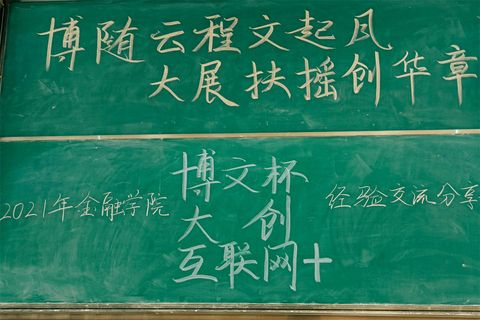 博随云程文起风
大展扶摇创华章
博文杯
2021年金融学院
大创
经验交流分享
互联网+